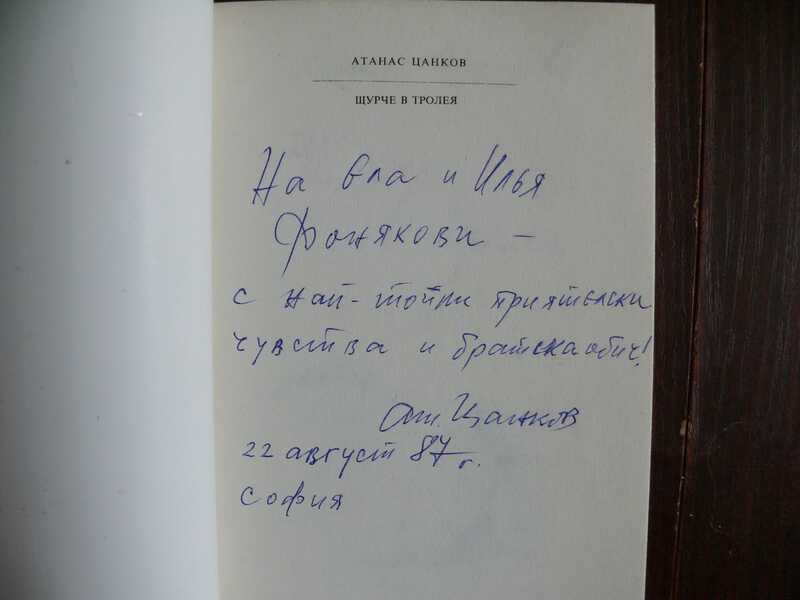 АТАНАС ЦАНКОВ
ЩУРЧЕ В ТРОЛЕЯ
На Ела и Илья
Фонякови –
с най-топли приятелски
чувства и братска обич!
Ат. Цанков
22 август 87 г.
София